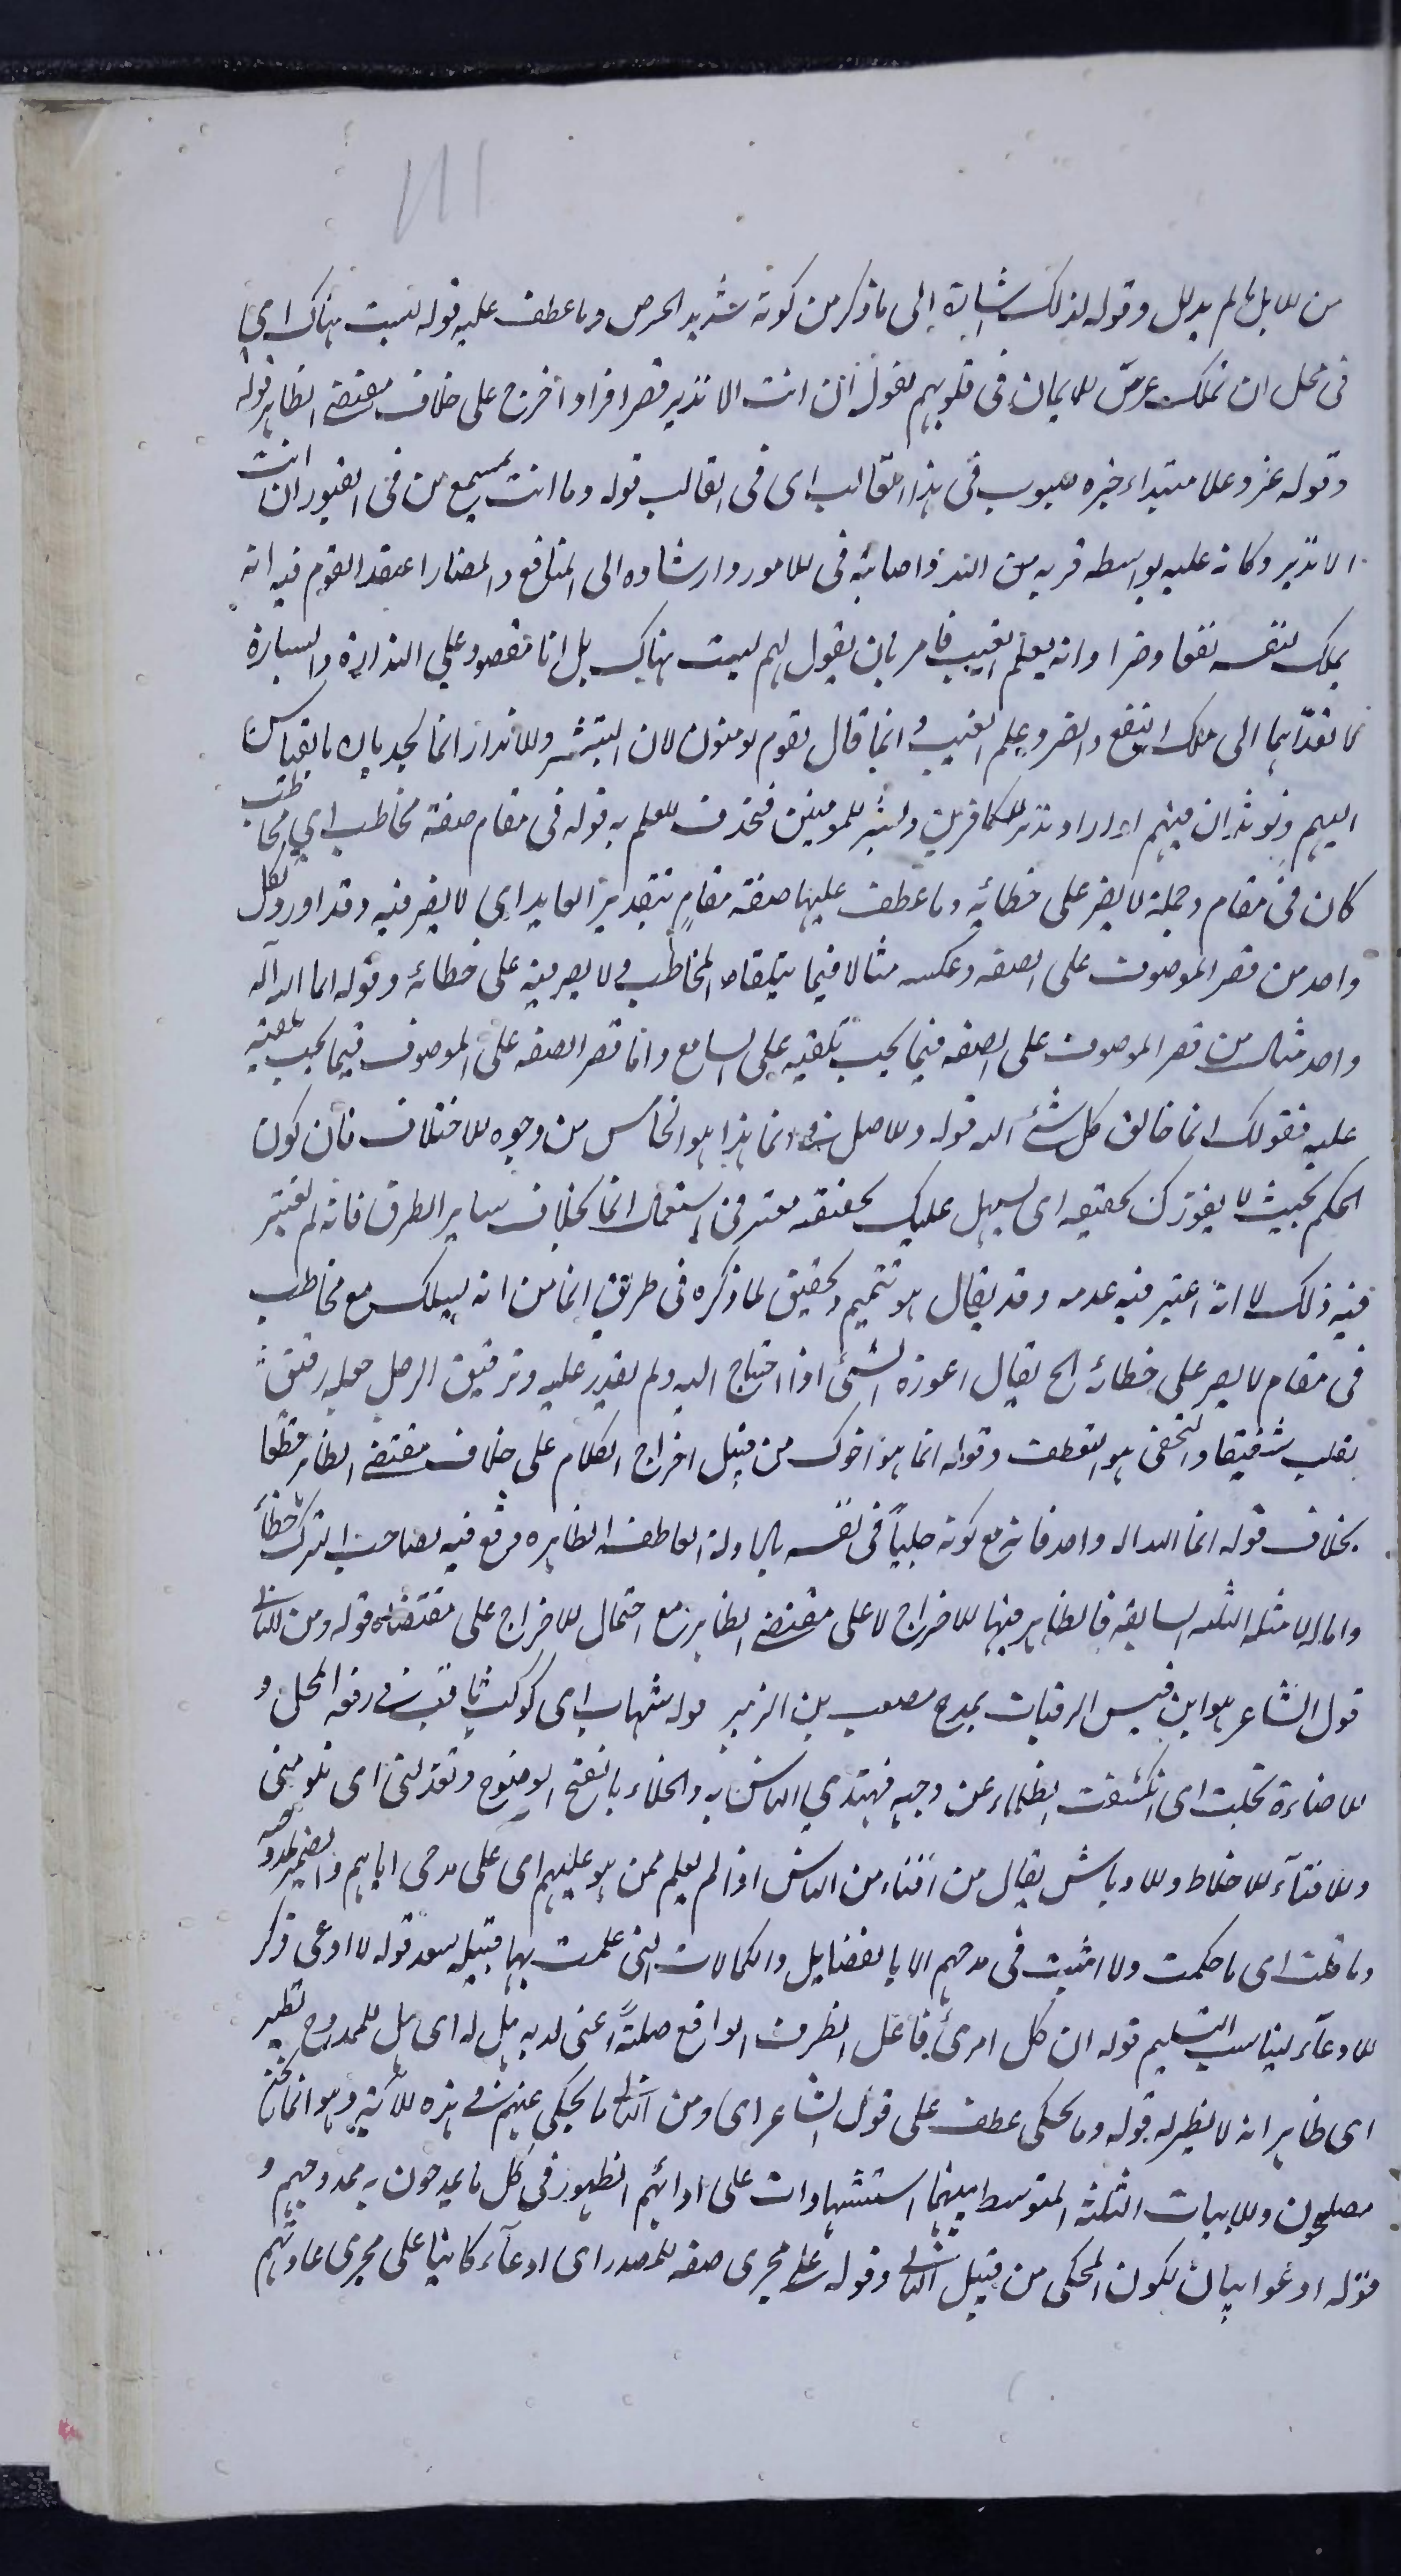 من للابل لم يدلل وقوله لذلك اشارة إلى ما ذكر من كونه شديد الحرص وما عطف عليه قوله لست هناك اى
فى محل ان تملك غرس للايمان فى قلوبهم بقول ان انت الا نذير قصر افراد اخرج على خلاف مقتضى الظاهر قوله
وقوله عز وعلا مبتداء خبره مصبوب فى هذا القالب اى فى القالب قوله وما انت بمسمع من فى القبور ان انت
الا نذير وكانه عليه بواسطه قربه من الله واصابته فى للامور وارشاده الى المنافع والمضار اعتقد القوم فيه انه
يملك لنفسه نفعا وضرا وانه يعلم الغيب فامر بان يقول لهم لست هناك بل انا مقصور علي النذارة والبشارة
لا تعداهما الى ملك النفع والضر وعلم الغيب وانما قال لقوم يومنون لان التبشير وللانذار انما يجديان بالقياس
اليهم ونوثران فيهم او اراد نذير للكافرين وبشير للمومنين فحذف للعلم به قوله فى مقام صفة مخاطب اي مخاطب
كان فى مقام وجملة لا يصر على خطائه وما عطف عليها صفة مقام بتقدير العايد اى لا يصر فيه وقد اورد لكل
واحد من قصر الموصوف على الصفه وعكسه مثالا فيما يتلقاه المخاطب ولا يصر فيه على خطائه وقوله انما الله اله
واحد مثال من قصر الموصوف على الصفه فيما يجب تلقيه على السامع واما قصر الصفه على الموصوف فيما يجب تلقيه
عليه فقولك انما خالق كل شئ الله قوله وللاصل فى انما هذا هو الخامس من وجوه للاختلاف فان كون
الحكم بحيث لا يعوزك تحقيقه اى يسهل عليك تحقيقه معتبر فى استعمال انما بخلاف ساير الطرق فانه لم يعتبر
فيه ذلك لا انه اعتبر فيه عدمه وقد يقال هو تتميم وتحقيق لما ذكره فى طريق انما من انه يسلك مع مخاطب
فى مقام لا يصر على خطائه الخ يقال اعوزه الشئ اذا احتاج اليه ولم يقدر عليه وترقيق الرجل جعله رقيق
بقلب شفيقا والتحفى هو التعطف وقوله انما هو اخوك من قبيل اخراج الكلام على خلاف مقتضى الظاهر قطعا
بخلاف قوله انما الله اله واحد فانه مع كونه جليا فى نفسه بالادلة القاطعه الظاهره وقع فيه لصاحب الشرك خطأ
واما للامثله الثلثه السابقه فالظاهر فيها للاخراج لا على مقتضى الظاهر مع احتمال للاخراج على مقتضاه قوله ومن الثانى
قول الشاعر هو ابن قيس الرقيات يمدح مصعب بن الزبير قوله شهاب اى كوكب ثاقب فى رفعه المحل و
للاضاءة تجلت اى انكشفت الظلماء عن وجهه فيهتدي الناس به والجلاء بالفتح الوضوح وتعذلنى اى تلومنى
وللافناء للاخلاط وللاوباش يقال من افناء من الناس اذا لم يعلم ممن هو عليهم اى على مدحى اياهم والضمير لمدوحه
وما قلت اى ما حكمت ولا اثنيت فى مدحهم الا بالفضايل والكمالات التى علمت بها قبيله سعد قوله لا ادعى ذكر
للادعآء يناسب التسليم قوله ان كل امرئ فاعل الظرف الواقع صلة اعنى لديه بل له اى بل للممدوح نظير
اى ظاهر انه لا نظير له قوله وما يحكى عطف على قول الشاعر اى ومن الثانى ما يحكى عنهم فى هذه للآية وهو انما نحن
مصلحون وللابيات الثلثه المتوسط بينهما استشهادات على ادعائهم الظهور فى كل ما يمدحون به ممدوحهم و
قوله ادعوا بيان لكون المحكى من قبيل الثانى وقوله على مجرى صفه للمصدر اى ادعآء كاينا على مجرى عادتهم